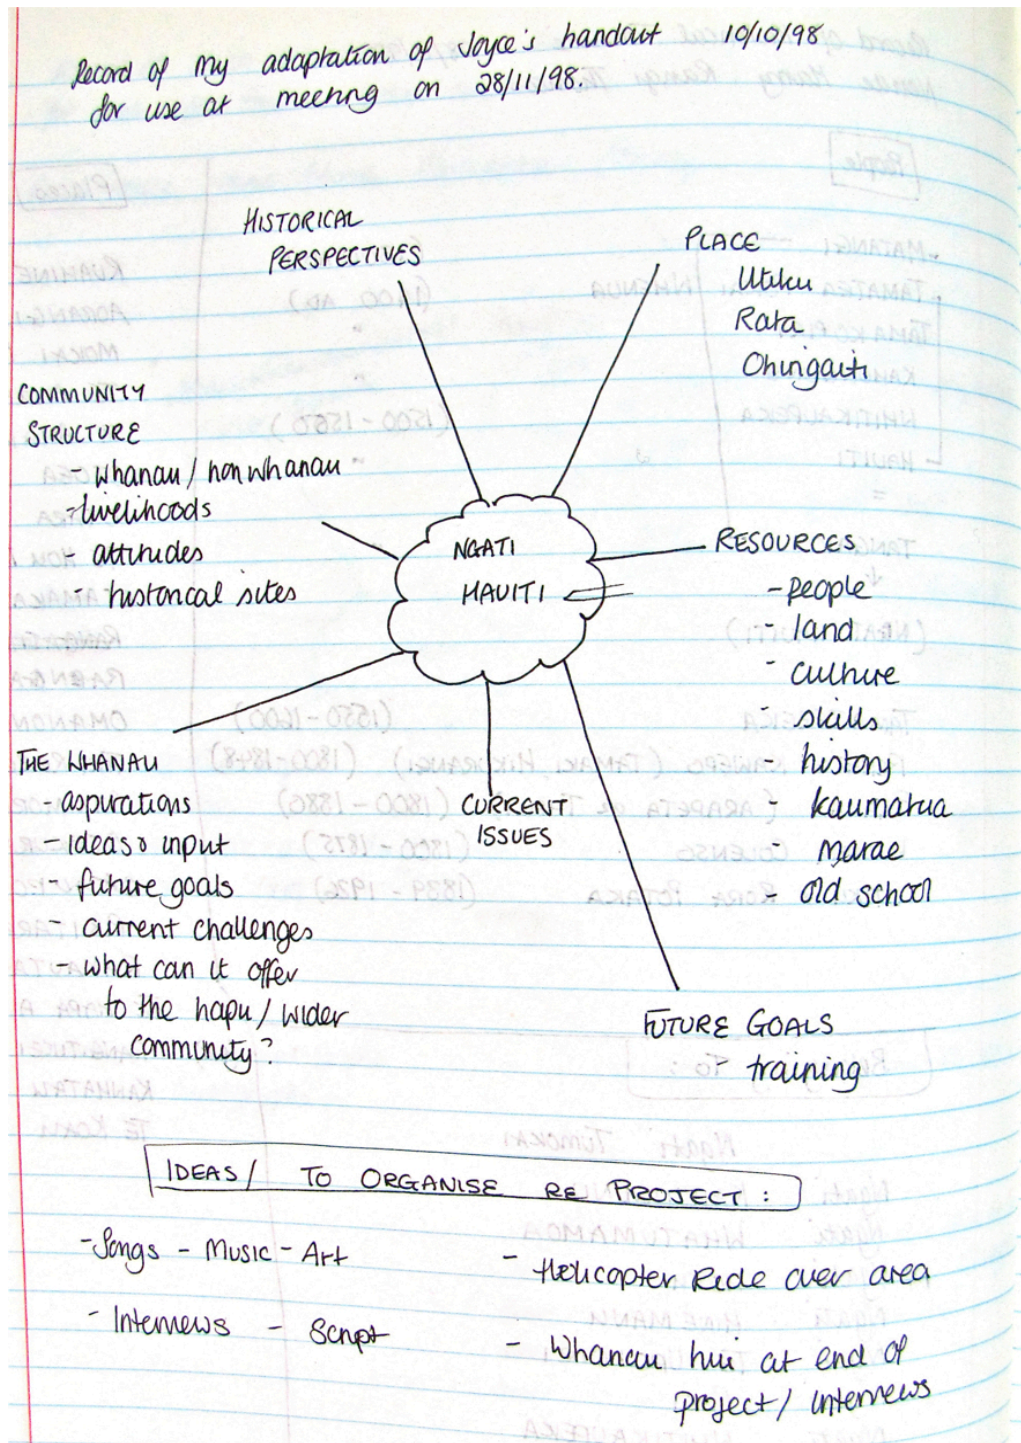 Record of my adaptation of Joyce's handout 10/10/98
for use at meeting on 28/11/98.
HISTORICAL
PERSPECTIVES
PLACE
Utiku
Rata
Ohingaiti
COMMUNITY
STRUCTURE
- whanau / non whanau
- livelihoods
- attitudes
- historical sites
NGATI
HAUITI
RESOURCES
- people
- land
- culture
- skills
- history
- kaumatua
- marae
- old school
THE WHANAU
- aspirations
- ideas & input
- future goals
- current challenges
- what can it offer
to the hapu / wider
community?
CURRENT
ISSUES
FUTURE GOALS
- training
IDEAS / TO ORGANISE RE PROJECT :
- Songs - Music - Art
- Interviews - Script
- Helicopter Ride over area
- Whanau hui at end of
project / interviews